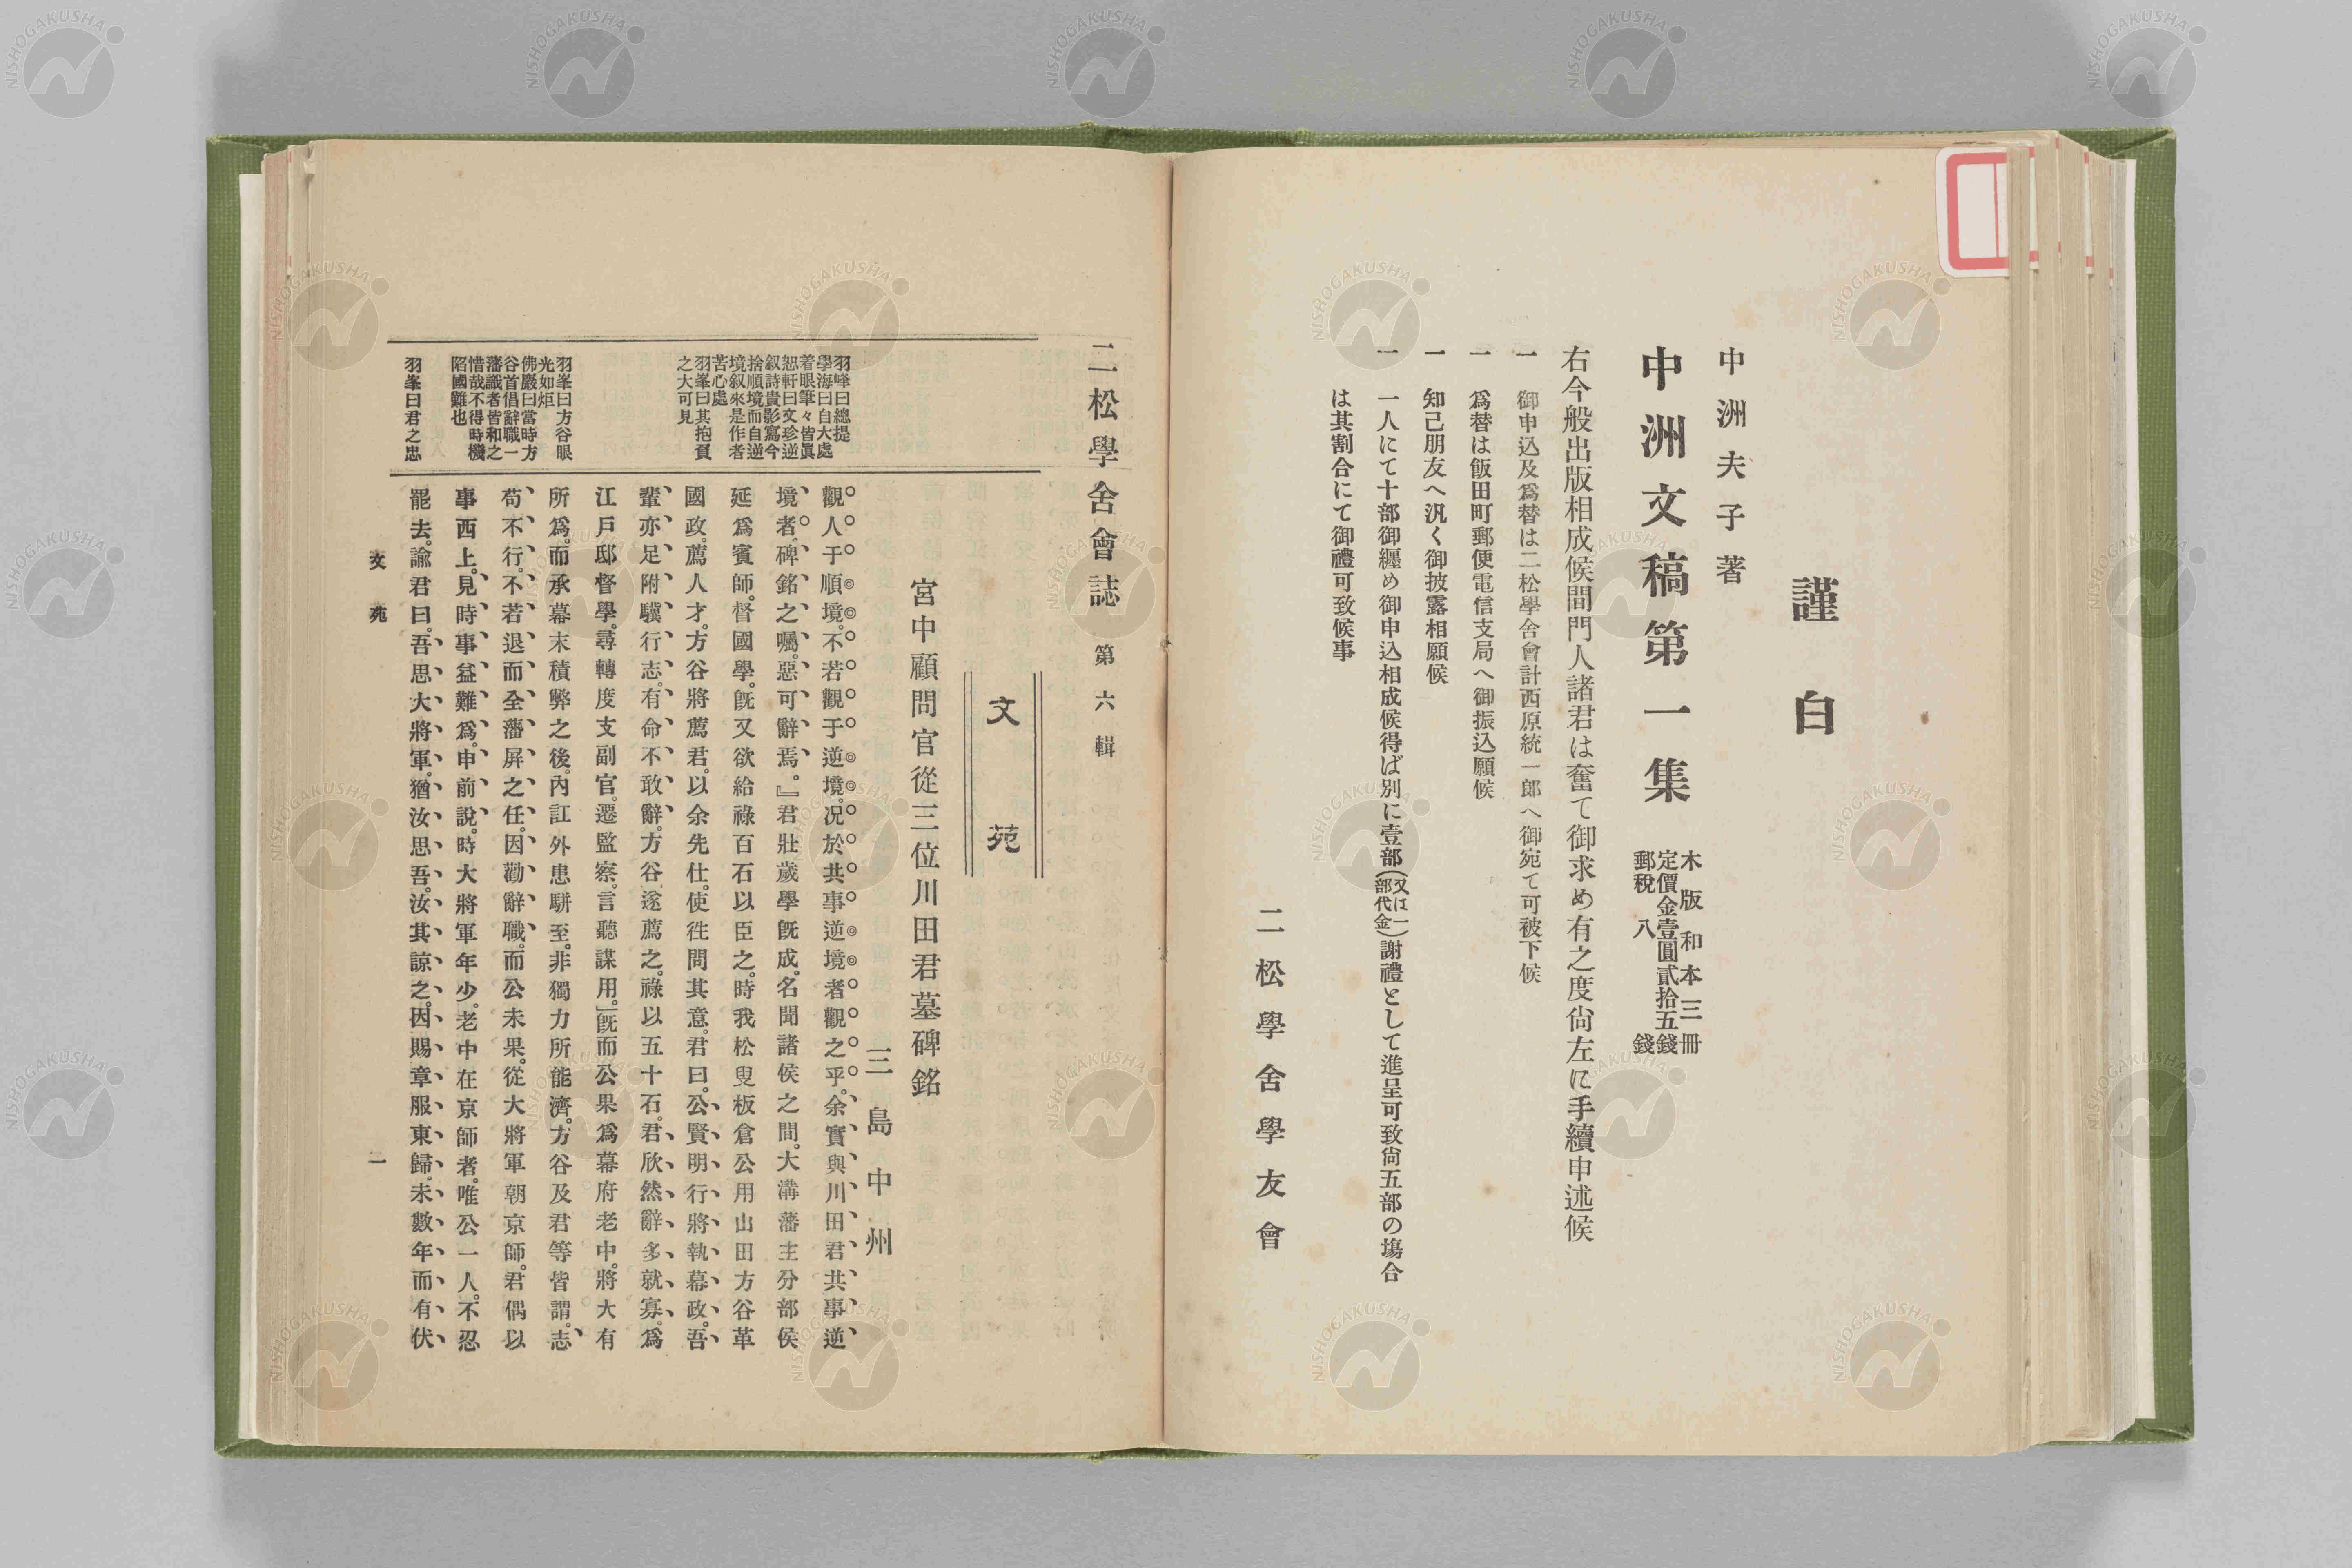 謹白
中洲夫子著
中洲文稿第一集
木版和本三冊
定價金壹圓貳拾五錢
郵稅八錢
右今般出版相成候間門人諸君は奮て御求め有之度尙左に手續申述候
一 御申込及爲替は二松學舍會計西原統一郞へ御宛て可被下候
一 爲替は飯田町郵便電信支局へ御振込願候
一 知己朋友へ汎く御披露相願候
一 一人にて十部御纒め御申込相成候得ば別に壹部(又は一部代金)謝禮として進呈可致尙五部の塲合
は其割合にて御禮可致候事
二松學舍學友會
二松學舍會誌 第六輯
文苑
宮中顧問官從三位川田君墓碑銘
三島中州
觀人于順境。不若觀于逆境。况於共事逆境者觀之乎。余實與川田君共事逆
境者。碑銘之囑。惡可辭焉。』君壯歲學旣成。名聞諸侯之間。大溝藩主分部侯
延爲賓師。督國學。旣又欲給祿百石以臣之。時我松叟板倉公用山田方谷革
國政。薦人才。方谷將薦君。以余先仕。使徃問其意。君曰。公賢明。行將執幕政。吾
輩亦足附驥行志。有命不敢辭。方谷遂薦之。祿以五十石。君欣然辭多就寡。爲
江戶邸督學。尋轉度支副官。遷監察。言聽謀用。」旣而公果爲幕府老中。將大有
所爲。而承幕末積弊之後。內訌外患駢至。非獨力所能濟。方谷及君等皆謂。志
苟不行。不若退而全藩屛之任。因勸辭職。而公未果。從大將軍朝京師。君偶以
事西上。見時事益難爲。申前說。時大將軍年少。老中在京師者。唯公一人。不忍
罷去。諭君曰。吾思大將軍。猶汝思吾。汝其諒之。因賜章服東歸。未數年而有伏
羽峰曰總提
學海曰自大處
着眼筆々皆眞
恕軒曰文珍逆
叙詩貴影寫今
捨順境而自逆
境叙來是作者
苦心處
羽峯曰其抱負
之大可見
羽峯曰方谷眼
光如炬
佛嚴曰當時方
谷首倡辭職一
藩識者皆和之
惜哉不得時機
陷國難也
羽峯曰君之忠
文苑
一
NISHOGAKUSHA